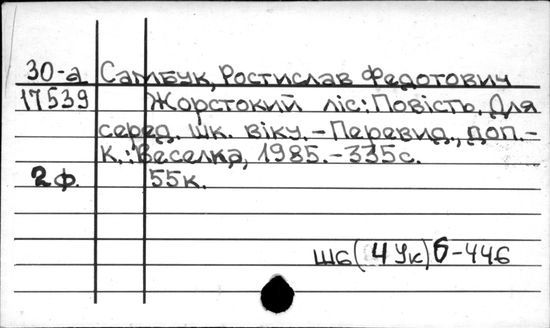 30-а Самбук, Ростислав Федотович
17539 Жорстокий ліс: Повість. Для
серед. шк. віку. - Перевид., доп. -
К.: Веселка, 1985. - 335 с.
2 ф. 55к.
Ш6(4Ук)6-446